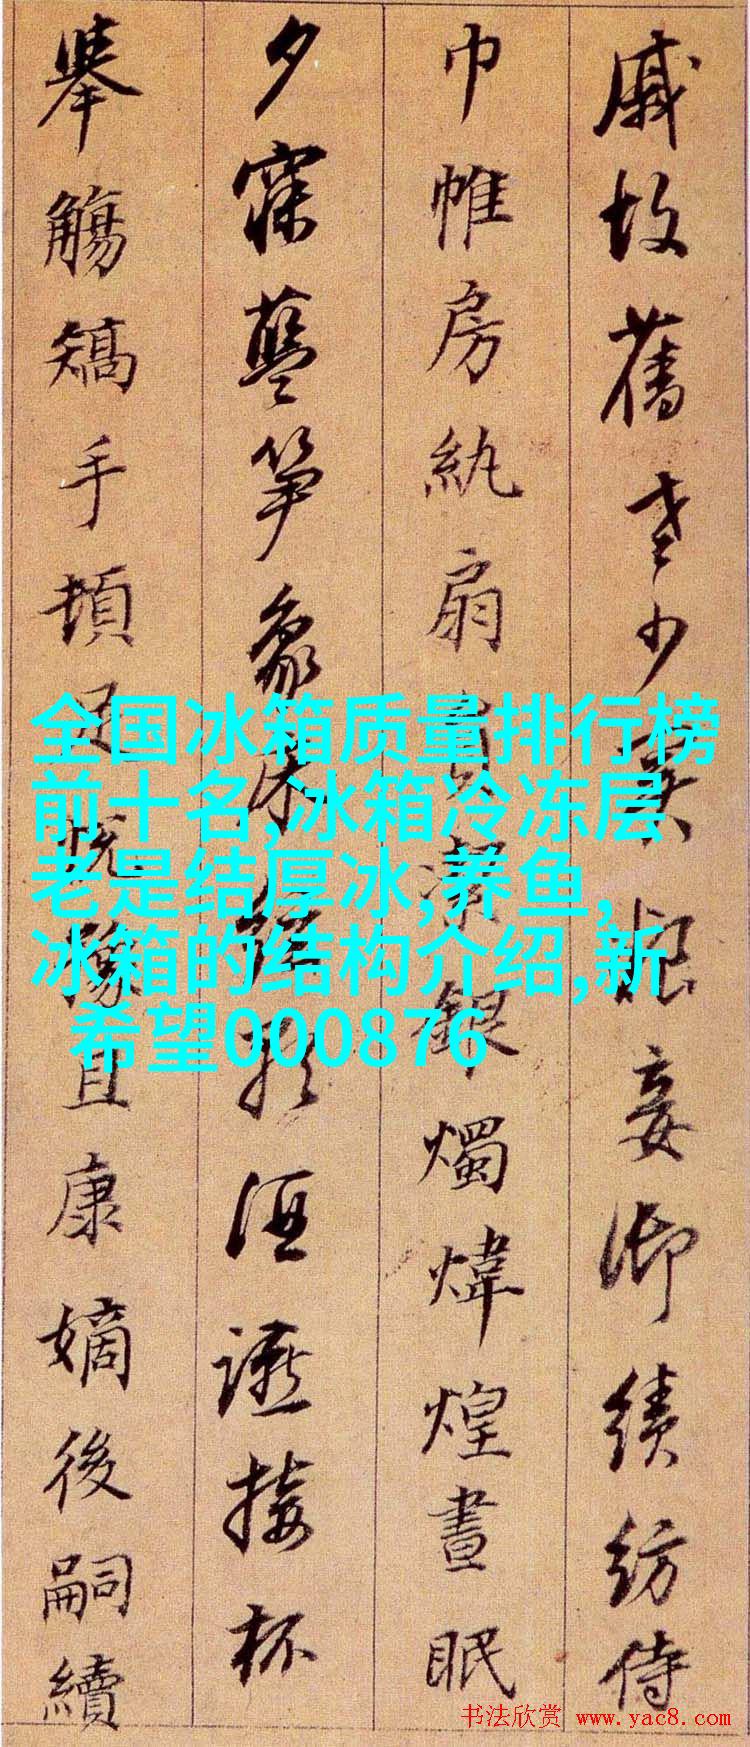 戚故舊老少異粮妾御績紡侍
巾帷房紈扇員潔銀燭煒煌晝眠
夕寐藍笋象床絃歌酒讌接杯
舉觴矯手頓足悅豫且康嫡後嗣續
全国冰箱质量排行榜
前十名,冰箱冷冻层
老是结厚冰,养鱼,
冰箱的结构介绍,新
希望000876
书法欣赏 www.yac8.com